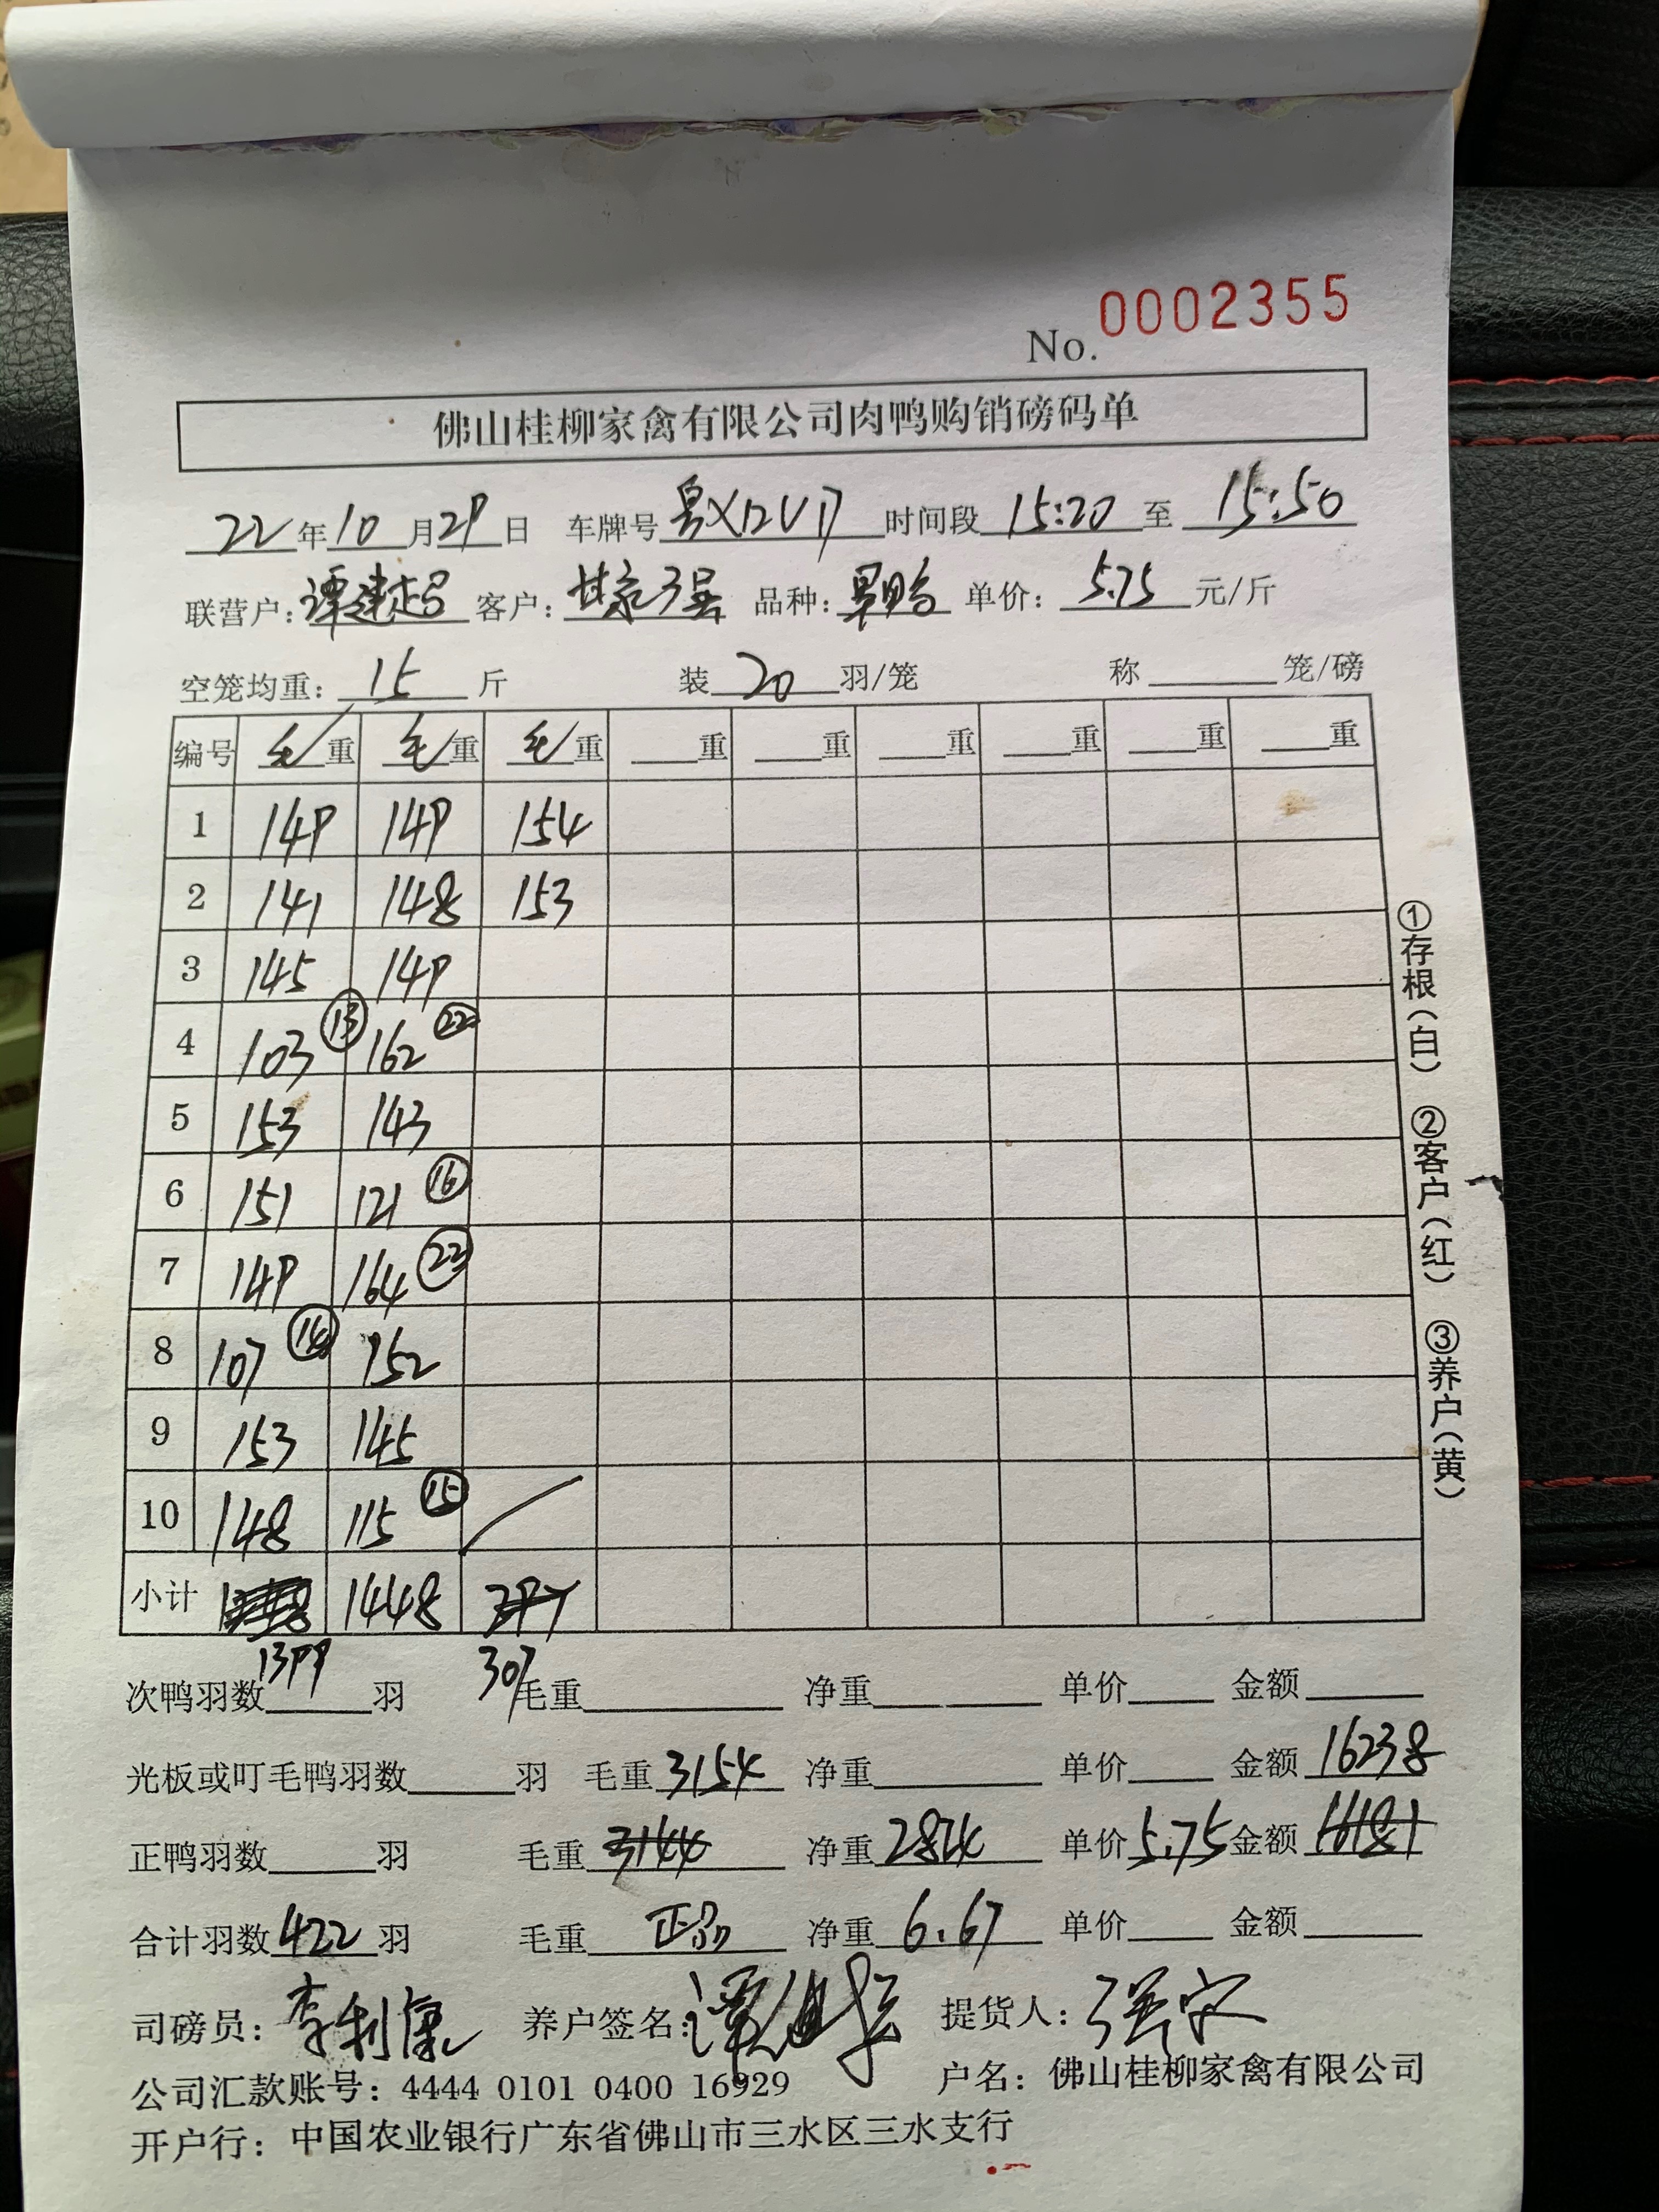 No. 0002355
佛山桂柳家禽有限公司肉鸭购销磅码单
22年10月29日 车牌号 时间段15:20至15:50
联营户:谭建超 客户: 品种: 单价:5.75元/斤
空笼均重:15斤 装20羽/笼 称 笼/磅
编号 毛重 毛重 毛重 重 重 重 重 重 重
1 149 149 154
2 141 148 153
3 145 149
4 103 ⑬ 162 ㉒
5 153 143
6 151 121 ⑯
7 149 164 ㉒
8 107 ⑭ 152
9 153 145
10 148 115 ⑮
小计 1448
1399 307
次鸭羽数 羽 毛重 净重 单价 金额
光板或叮毛鸭羽数 羽 毛重3154 净重 单价 金额16238
正鸭羽数 羽 毛重3144 净重2824 单价5.75 金额16181
合计羽数422羽 毛重 净重6.67 单价 金额
司磅员:李利康 养户签名: 提货人:
公司汇款账号:4444 0101 0400 16929 户名:佛山桂柳家禽有限公司
开户行:中国农业银行广东省佛山市三水区三水支行
①存根(白) ②客户(红) ③养户(黄)